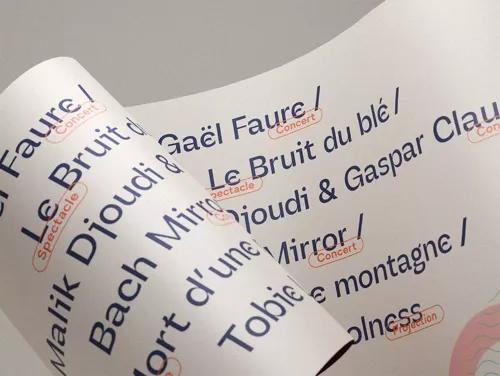 Faure /
Concert
Le Bruit
Spectacle
Malik Djoudi &
Bach Mirro
d'une
Tobie
Gaël Faure /
Concert
Le Bruit du blé /
Djoudi & Gaspar Clau
Mirror /
Concert
montagne /
olness
Projection